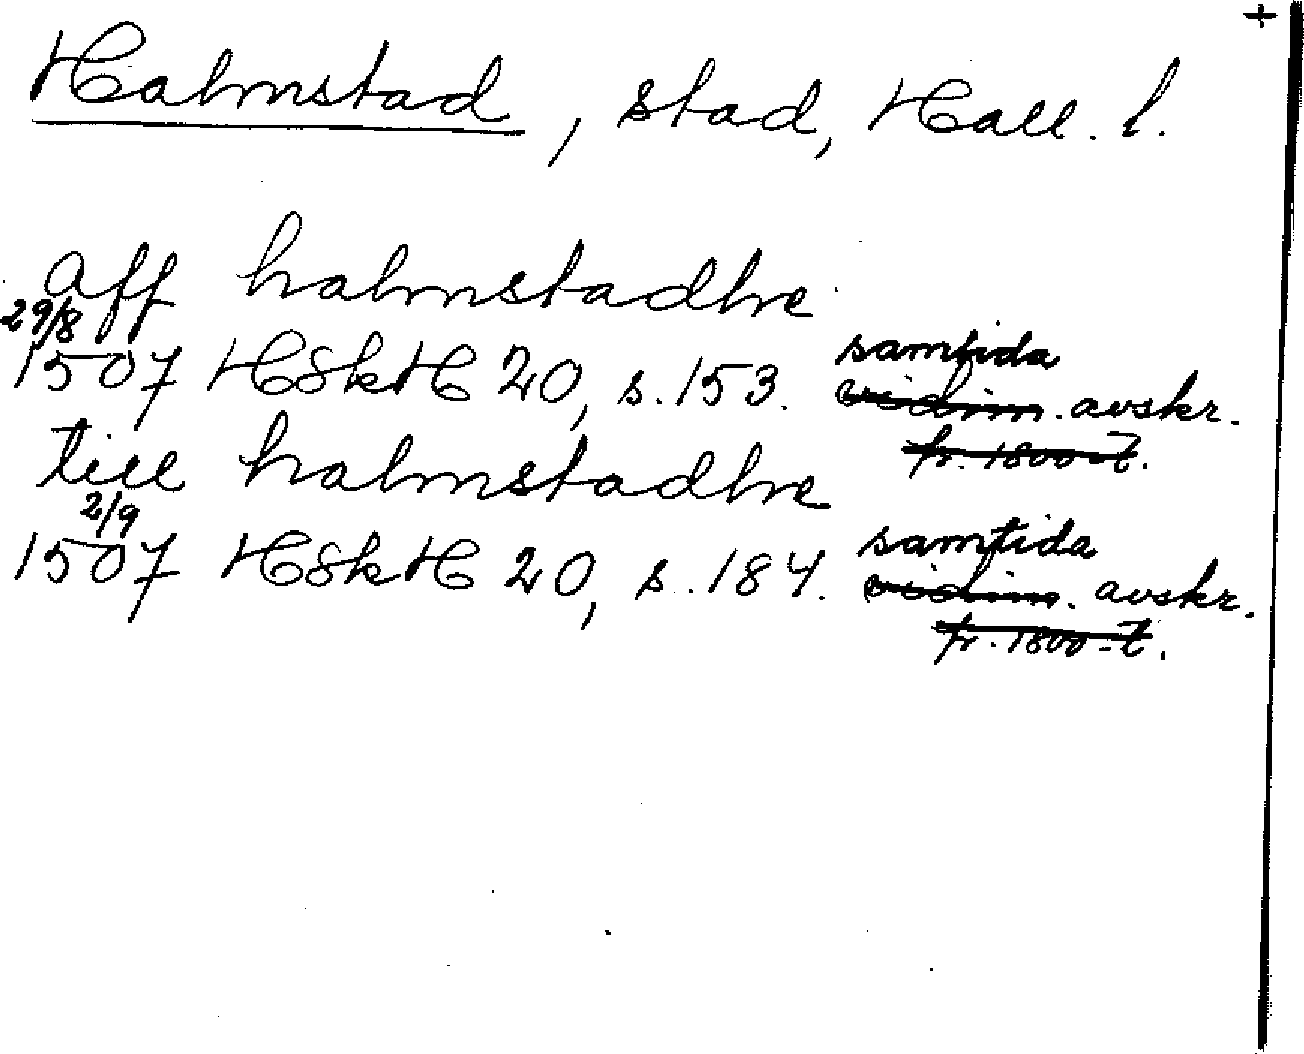 +
Halmstad, stad, Hall. l.
aff halmstadhe
29/8
1507 HSkH 20, s. 153. samtida
vidim. avskr.
fr. 1800-t.
till halmstadhe
2/9
1507 HSkH 20, s. 184. samtida
vidim. avskr.
fr. 1800-t.